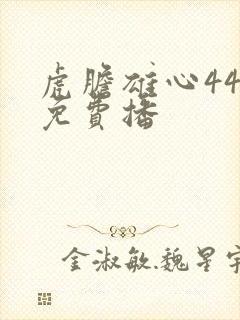 虎膽雄心44
免費播
金淑敏.魏星宇